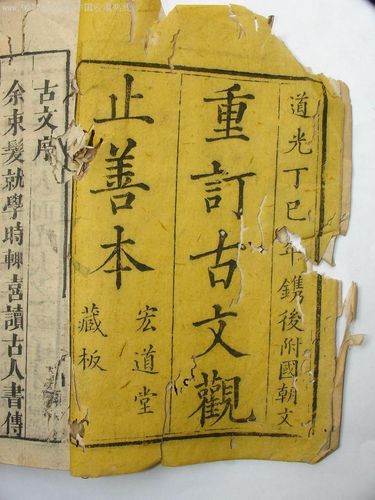 道光丁巳年鐫後附國朝文
重訂古文觀
止善本
宏道堂
藏板
古文序
余束髮就學時輙喜讀古人書傳